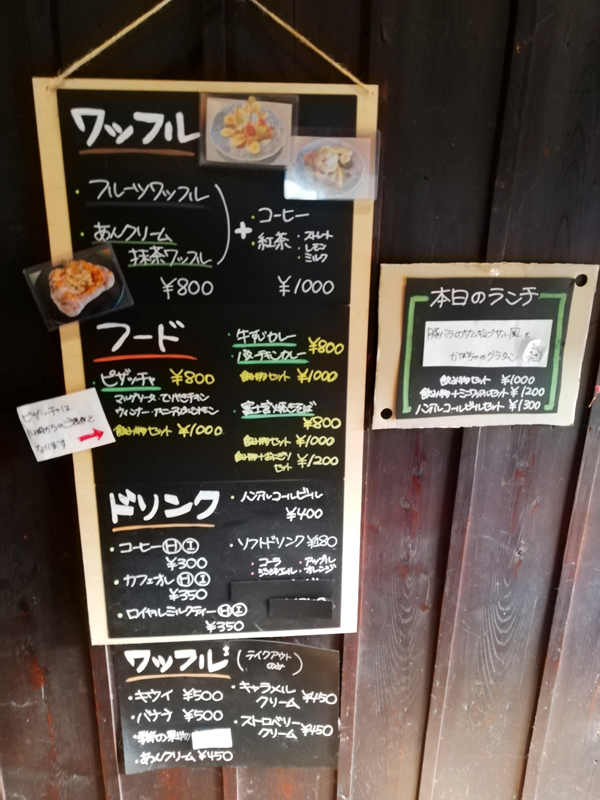 ワッフル
フルーツワッフル
あんクリーム
抹茶ワッフル
¥800
+
コーヒー
紅茶
・ストレート
・レモン
・ミルク
¥1000
フード
・ピザッチャ ¥800
マルゲリータ・てりやきチキン
飲み物セット ¥1000
・牛すじカレー
・バターチキンカレー ¥800
飲み物セット ¥1000
・富士宮焼きそば
¥800
飲み物セット ¥1000
飲み物+おにぎり
セット ¥1200
ピザッチャは
なります
ドリンク
・コーヒーⒽⒾ
¥300
・カフェオレⒽⒾ
¥350
・ロイヤルミルクティーⒽⒾ
¥350
・ノンアルコールビール
¥400
・ソフトドリンク ¥180
・コーラ ・アップル
・ジンジャエール ・オレンジ
ワッフル
(テイクアウトのみ)
・キウイ ¥500
・バナナ ¥500
・季節の果物
・あんクリーム ¥450
・キャラメル
クリーム ¥450
・ストロベリー
クリーム ¥450
本日のランチ
かぼちゃのグラタン
飲み物セット ¥1000
飲み物+ミニワッフルセット ¥1200
ノンアルコールビールセット ¥1300